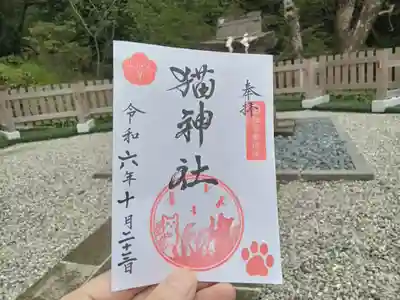 奉拝
猫神社
令和六年十月二十三日